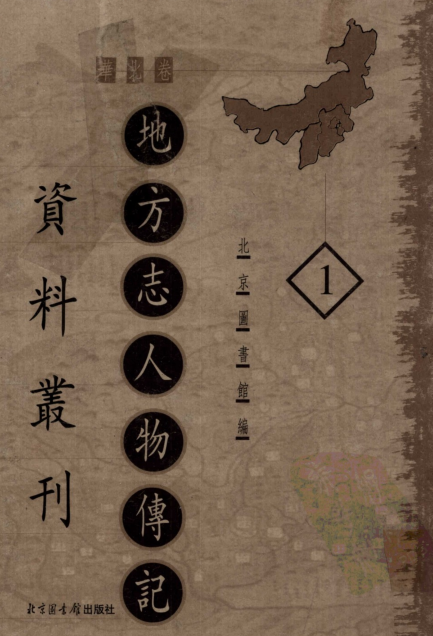 華北卷
地方志人物傳記
資料叢刊
北京圖書館編
1
北京图书馆出版社